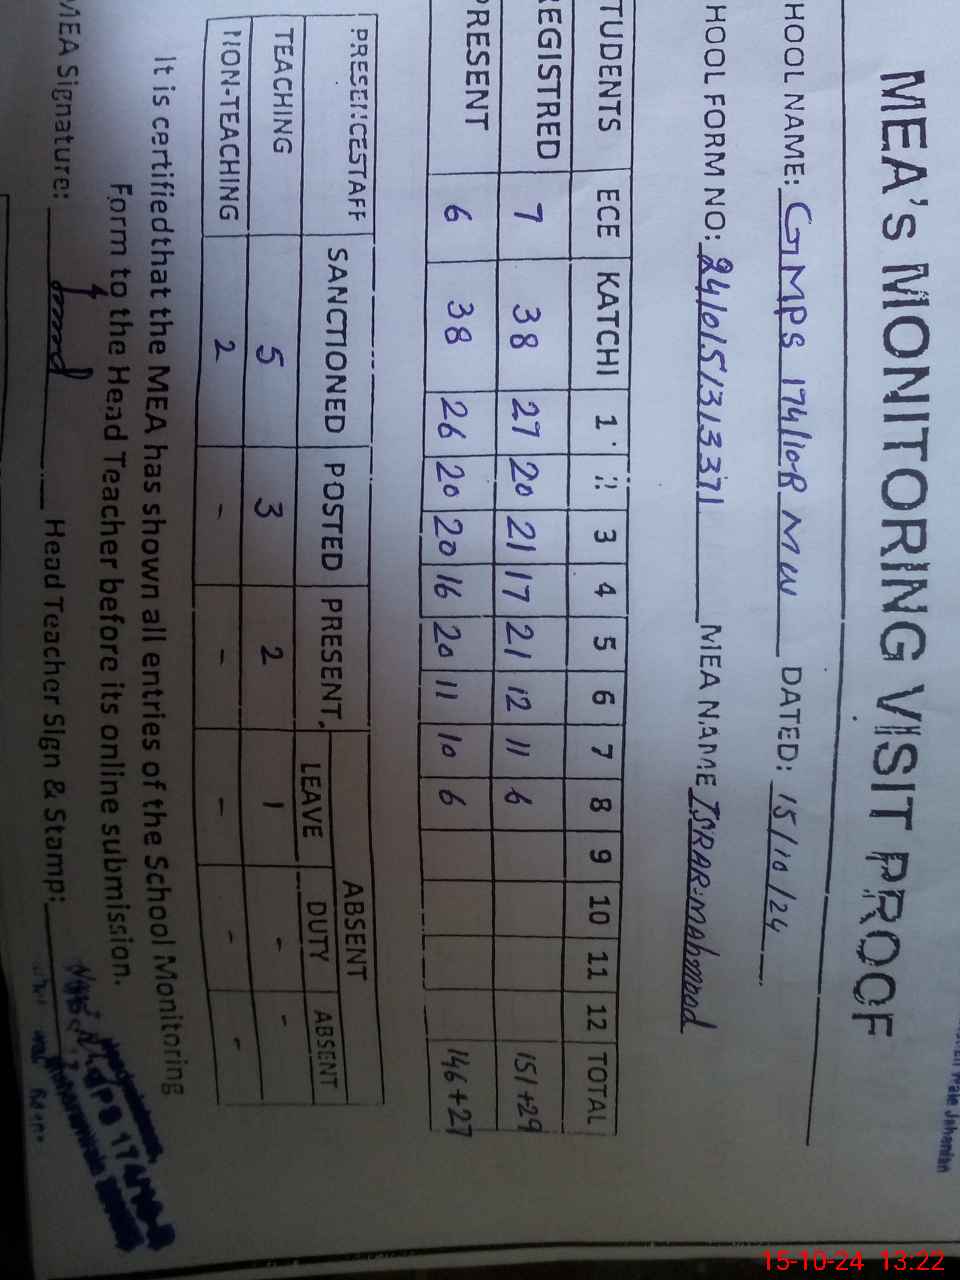 Wale Jahanian
MEA'S MONITORING VISIT PROOF
HOOL NAME: GMPS 174/10-R MW DATED: 15/10/24
HOOL FORM NO: 24101513133371 MEA NAME ISRAR mahmood
TUDENTS ECE KATCHI 1 2 3 4 5 6 7 8 9 10 11 12 TOTAL
REGISTRED 7 38 27 20 21 17 21 12 11 6 151+29
PRESENT 6 38 26 20 20 16 20 11 10 6 146+27
PRESENCESTAFF SANCTIONED POSTED PRESENT ABSENT
LEAVE DUTY ABSENT
TEACHING 5 3 2 1 - -
NON-TEACHING 2 - - - - -
It is certifiedthat the MEA has shown all entries of the School Monitoring
Form to the Head Teacher before its online submission.
MEA Signature: Head Teacher Sign & Stamp:
15-10-24 13:22